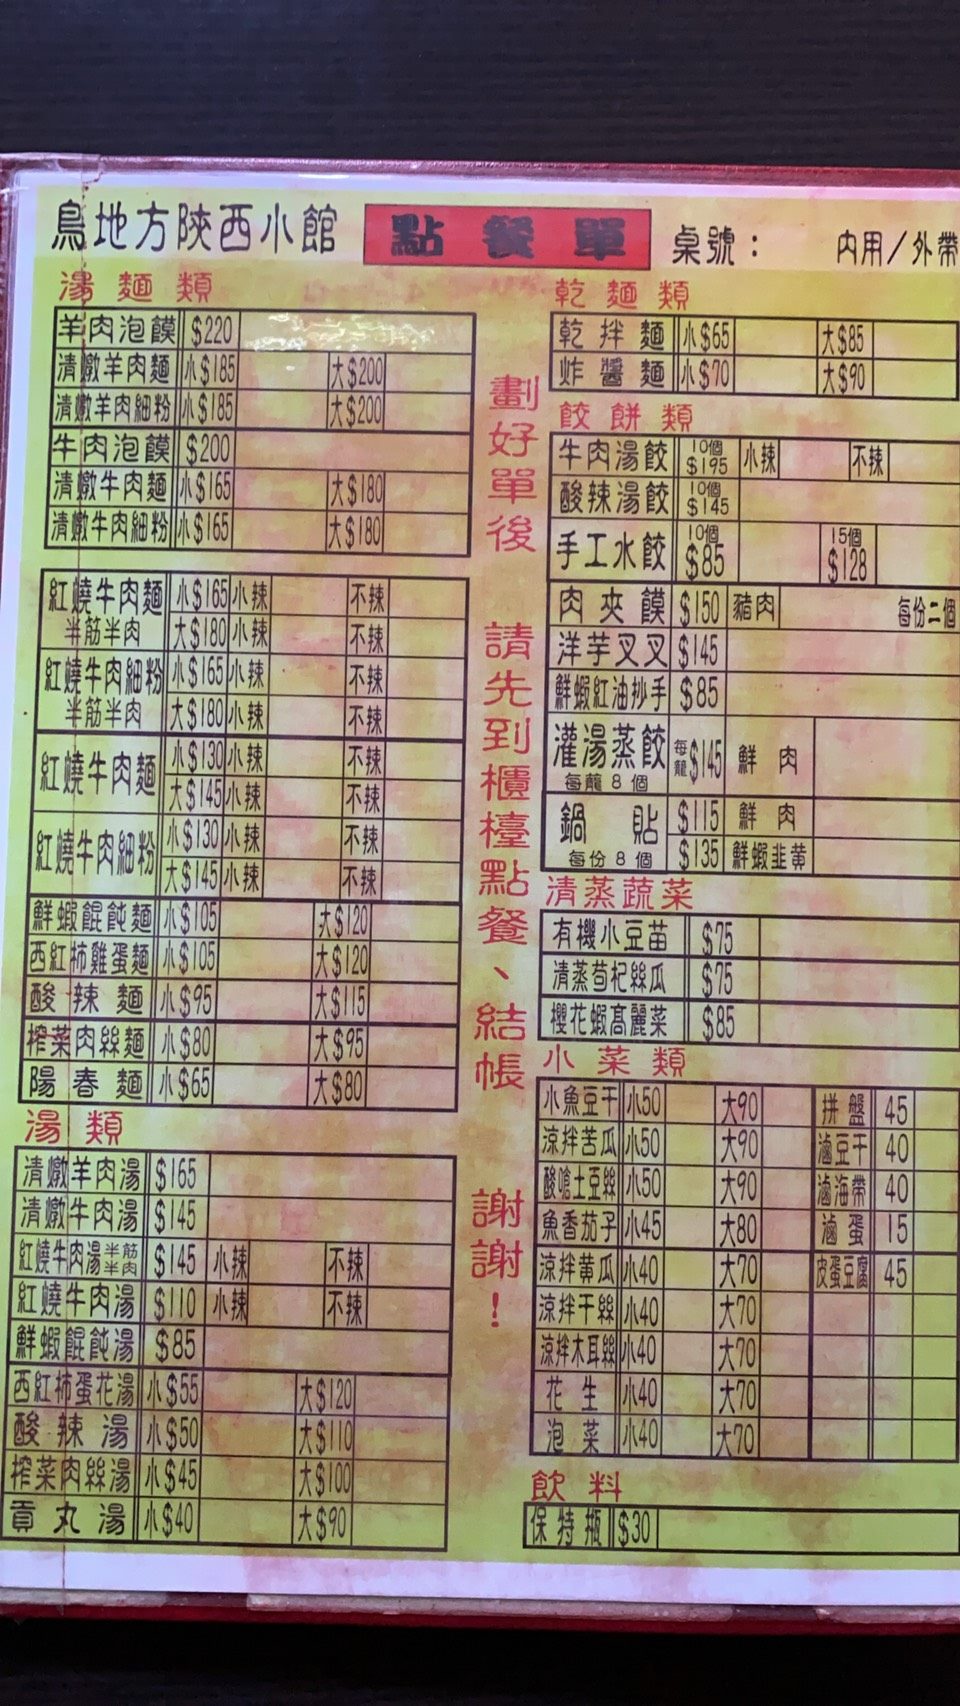 鳥地方陝西小館 點餐單 桌號： 內用／外帶
湯麵類
羊肉泡饃 $220
清燉羊肉麵 小$185 大$200
清燉羊肉細粉 小$185 大$200
牛肉泡饃 $200
清燉牛肉麵 小$165 大$180
清燉牛肉細粉 小$165 大$180
紅燒牛肉麵 小$165 小辣 不辣
半筋半肉 大$180 小辣 不辣
紅燒牛肉細粉 小$165 小辣 不辣
半筋半肉 大$180 小辣 不辣
紅燒牛肉麵 小$130 小辣 不辣
大$145 小辣 不辣
紅燒牛肉細粉 小$130 小辣 不辣
大$145 小辣 不辣
鮮蝦餛飩麵 小$105 大$120
西紅柿雞蛋麵 小$105 大$120
酸辣麵 小$95 大$115
榨菜肉絲麵 小$80 大$95
陽春麵 小$65 大$80
湯類
清燉羊肉湯 $165
清燉牛肉湯 $145
紅燒牛肉湯 半筋半肉 $145 小辣 不辣
紅燒牛肉湯 $110 小辣 不辣
鮮蝦餛飩湯 $85
西紅柿蛋花湯 小$55 大$120
酸辣湯 小$50 大$110
榨菜肉絲湯 小$45 大$100
貢丸湯 小$40 大$90
劃好單後 請先到櫃檯點餐、結帳 謝謝！
乾麵類
乾拌麵 小$65 大$85
炸醬麵 小$70 大$90
餃餅類
牛肉湯餃 10個 $195 小辣 不辣
酸辣湯餃 10個 $145
手工水餃 10個 $85 15個 $128
肉夾饃 $150 豬肉 每份二個
洋芋叉叉 $145
鮮蝦紅油抄手 $85
灌湯蒸餃 每籠 $145 鮮肉
每籠8個
鍋貼 $115 鮮肉
每份8個 $135 鮮蝦韭黃
清蒸蔬菜
有機小豆苗 $75
清蒸茍杞絲瓜 $75
櫻花蝦高麗菜 $85
小菜類
小魚豆干 小50 大90 拼盤 45
涼拌苦瓜 小50 大90 滷豆干 40
酸嗆土豆絲 小50 大90 滷海帶 40
魚香茄子 小45 大80 滷蛋 15
涼拌黃瓜 小40 大70 皮蛋豆腐 45
涼拌干絲 小40 大70
涼拌木耳絲 小40 大70
花生 小40 大70
泡菜 小40 大70
飲料
保特瓶 $30